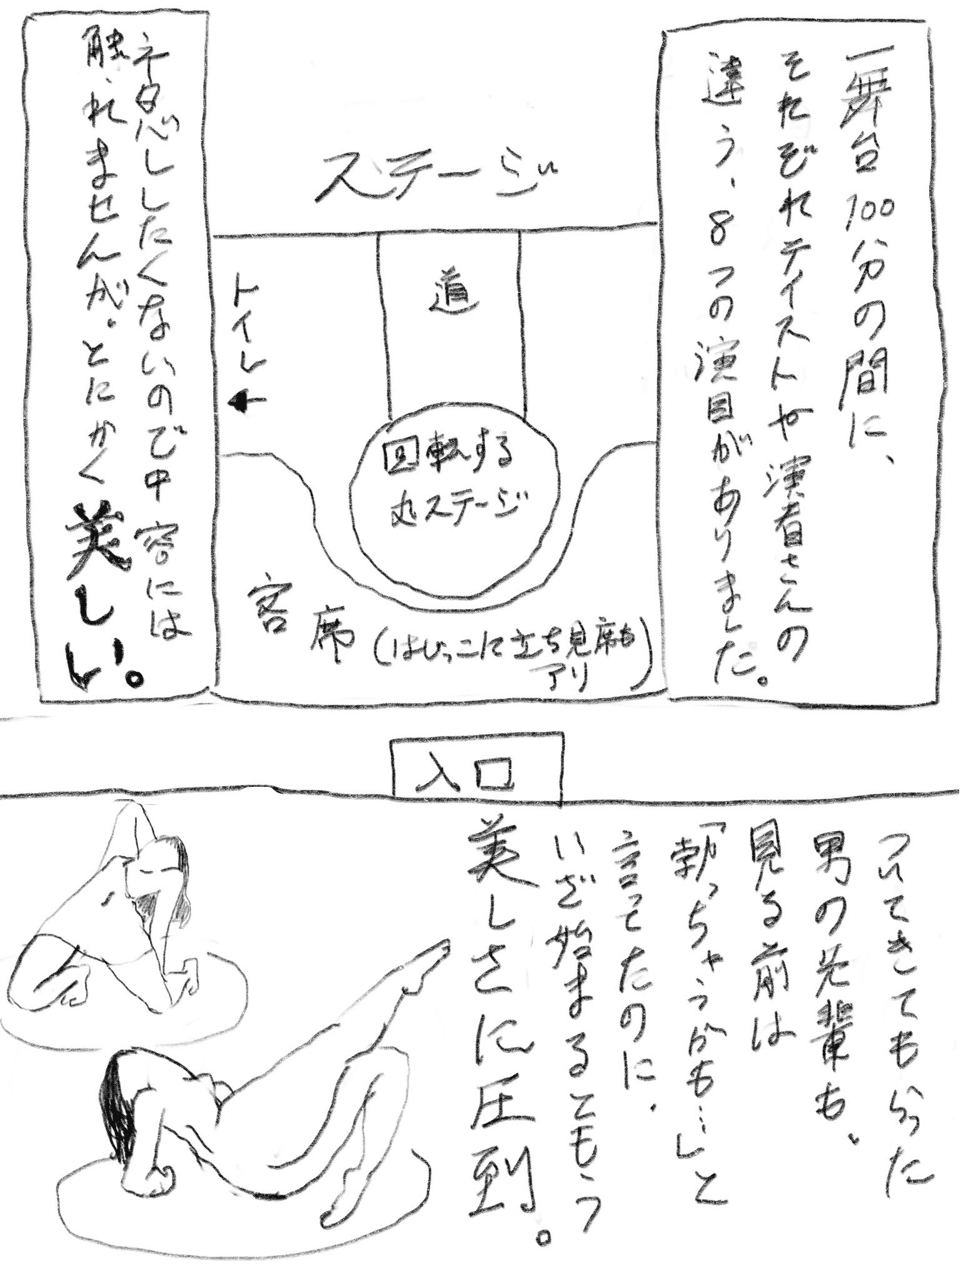 一舞台100分の間に、
それぞれテイストや演者さんの
違う、8つの演目がありました。
ステージ
道
回転する
丸ステージ
トイレ
客席
(はじっこに立ち見席も
アリ)
ネタ忍ししたくないので中容には
触れませんが。とにかく美しい。
入口
ついてきてもらった
男の先輩も、
見る前は
「勃っちゃうかも…」と
言ってたのに、
いざ始まるともう
美しさに圧倒。